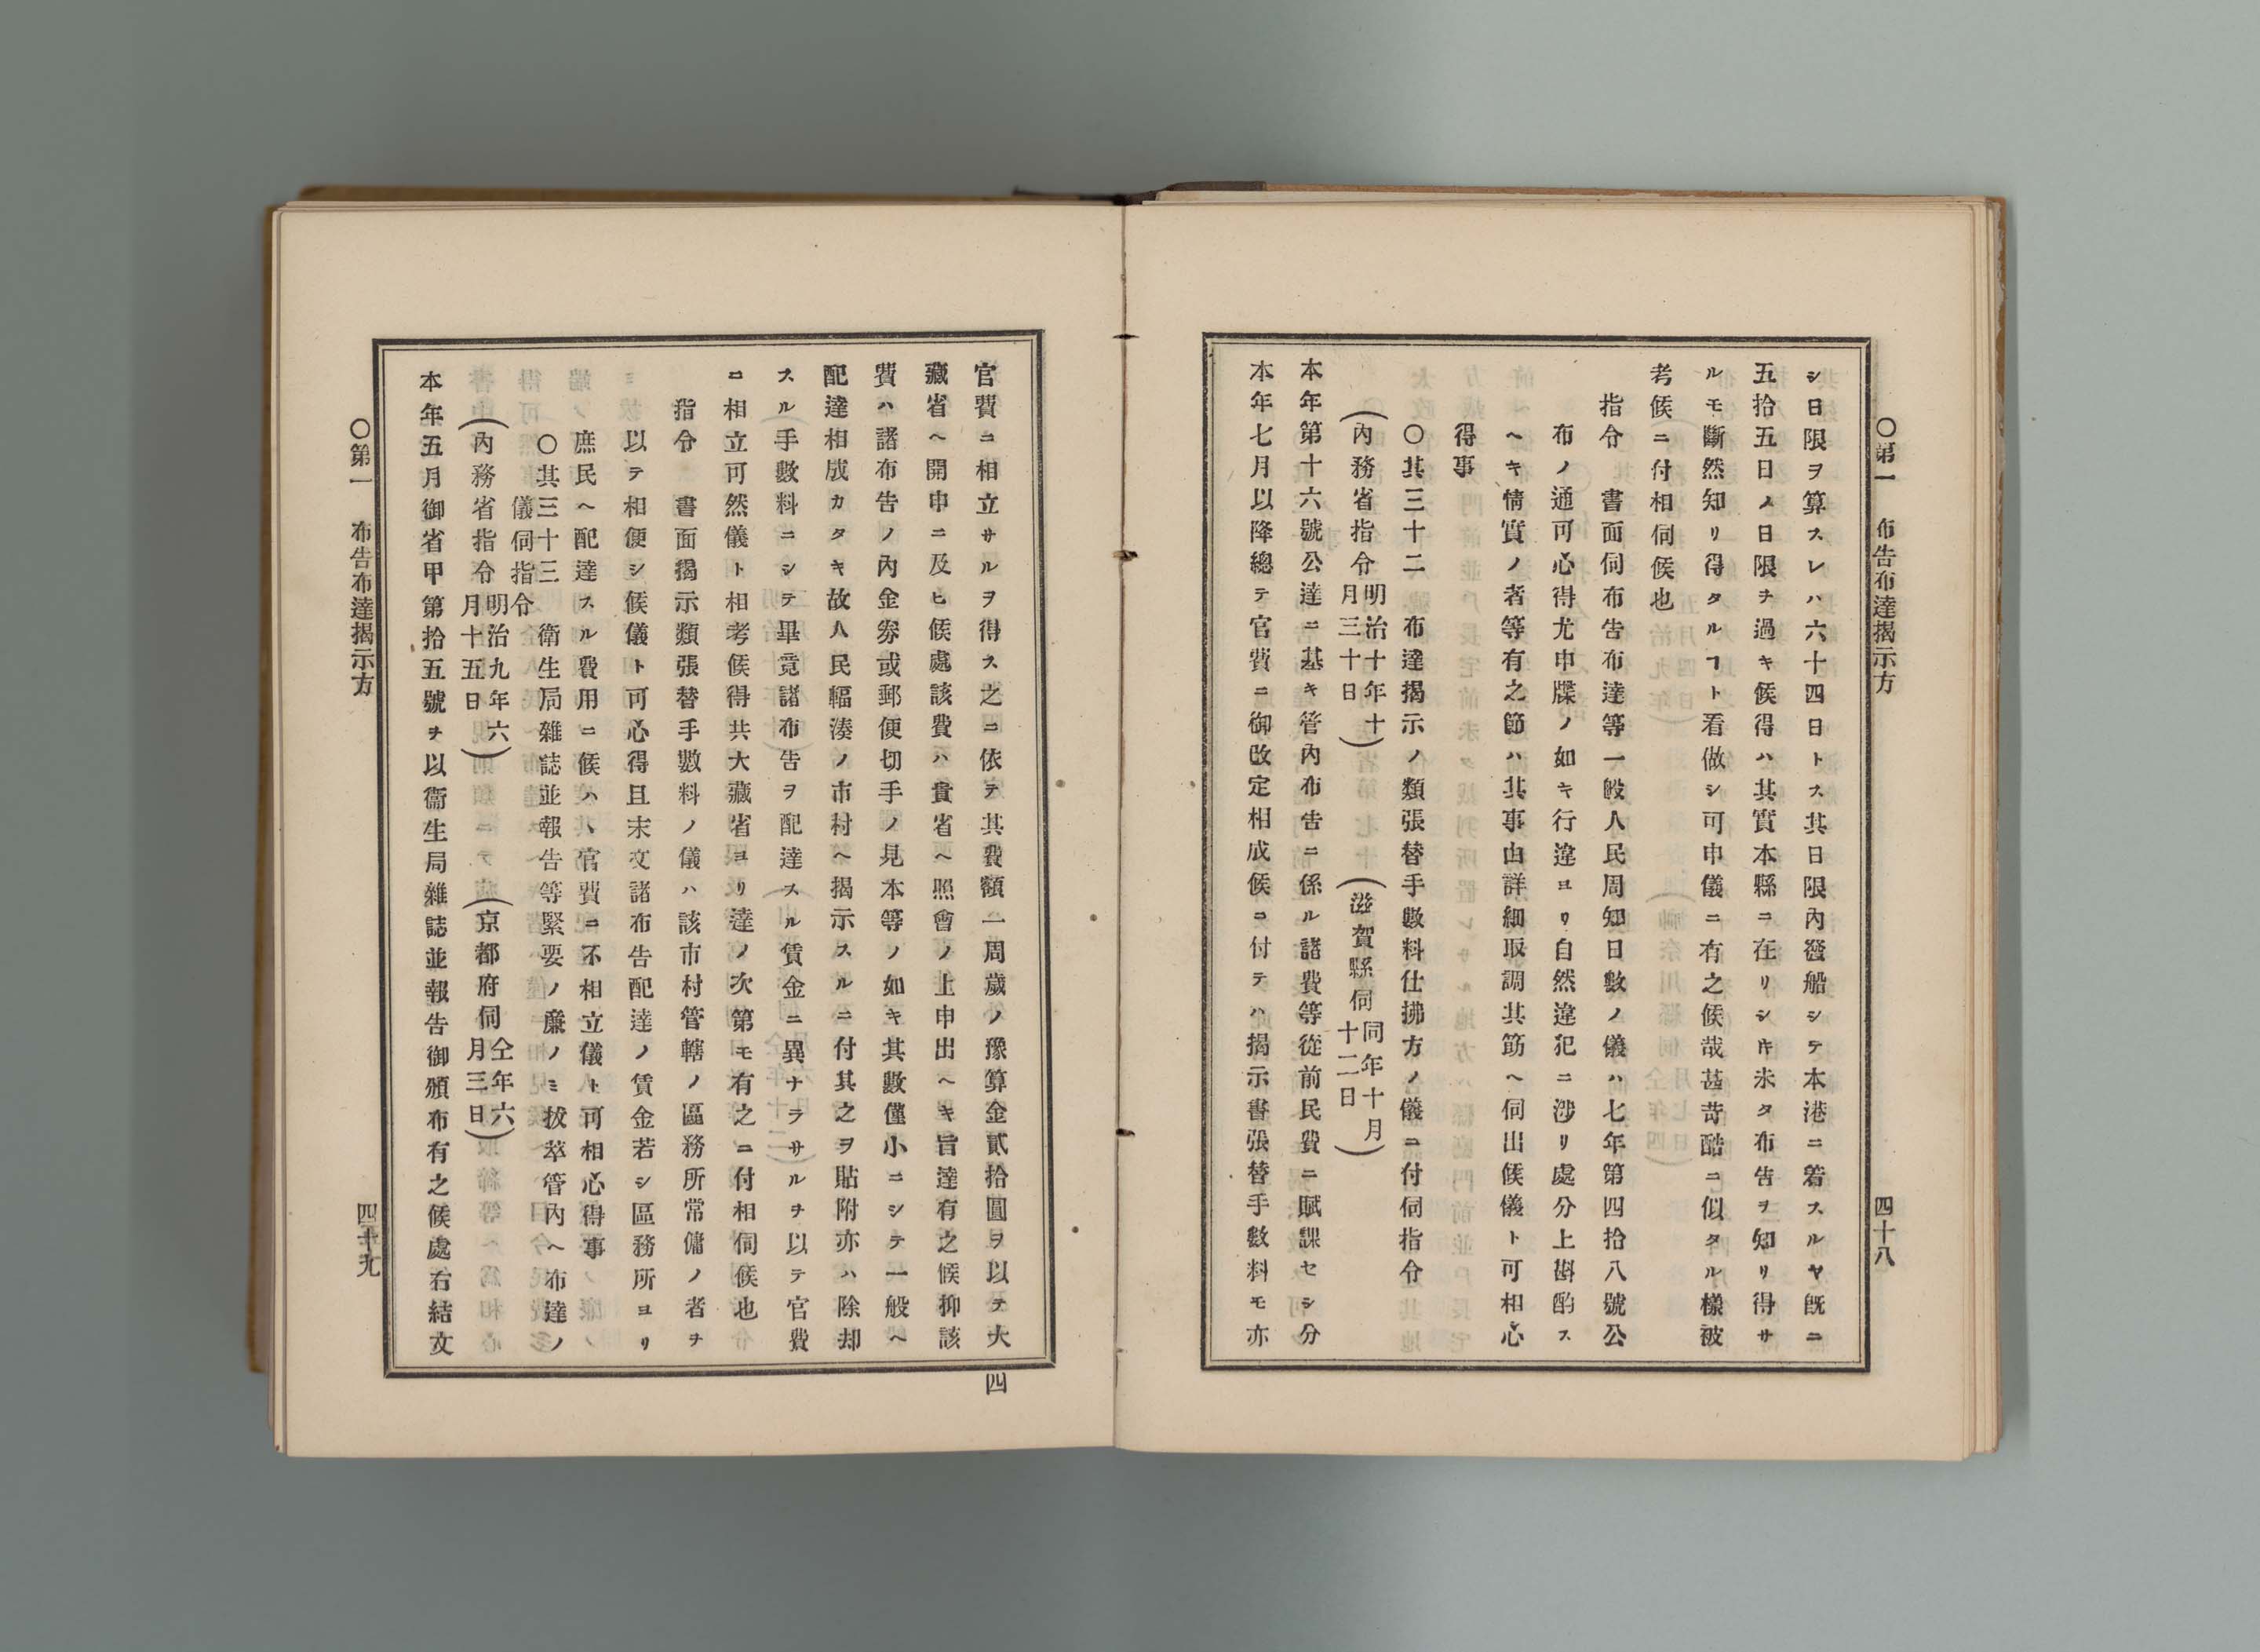 ○第一　布告布達揭示方　四十八
シ日限ヲ算スレハ六十四日トス其日限內發船シテ本港ニ着スルヤ旣ニ
五拾五日ノ日限チ過キ候得ハ其實本縣ニ在リシキ未タ布告ヲ知リ得サ
ルモ斷然知リ得タルヿト看做シ可申儀ニ有之候哉甚苛酷ニ似タル樣被
考候ニ付相伺候也
指令　書面伺布告布達等一般人民周知日數ノ儀ハ七年第四拾八號公
布ノ通可心得尤申牒ノ如キ行違ヨリ自然違犯ニ涉リ處分上斟酌ス
ヘキ情實ノ者等有之節ハ其事由詳細取調其筋ヘ伺出候儀ト可相心
得事
○其三十二　布達揭示ノ類張替手數料仕拂方ノ儀ニ付伺指令
（內務省指令明治十年十月三十日）　（滋賀縣伺同年十月十二日）
本年第十六號公達ニ基キ管內布告ニ係ル諸費等從前民費ニ賦課セシ分
本年七月以降總テ官費ニ御改定相成候ニ付テハ揭示書張替手數料モ亦
官費ニ相立サルヲ得ス之ニ依テ其費額一周歲ノ豫算金貳拾圓ヲ以テ大
藏省ヘ開申ニ及ヒ候處該費ハ貴省ヘ照會ノ上申出ヘキ旨達有之候抑該
費ハ諸布告ノ內金劵或郵便切手ノ見本等ノ如キ其數僅小ニシテ一般ヘ
配達相成カタキ故人民輻湊ノ市村ヘ揭示スルニ付其之ヲ貼附亦ハ除却
スル手數料ニシテ畢竟諸布告ヲ配達スル賃金ニ異ナラサルヲ以テ官費
ニ相立可然儀ト相考候得共大藏省ヨリ達ノ次第モ有之ニ付相伺候也
指令　書面揭示類張替手數料ノ儀ハ該市村管轄ノ區務所常傭ノ者チ
以テ相便シ候儀ト可心得且末文諸布告配達ノ賃金若シ區務所ヨリ
庶民ヘ配達スル費用ニ候ハヽ官費ニ不相立儀ト可相心得事
○其三十三　衛生局雜誌並報告等緊要ノ廉ノミ拔萃管內ヘ布達ノ
儀伺指令
（內務省指令明治九年六月十五日）　（京都府伺仝年六月三日）
本年五月御省甲第拾五號ヲ以衞生局雜誌並報告御頒布有之候處右結文
四
○第一　布告布達揭示方　四十九